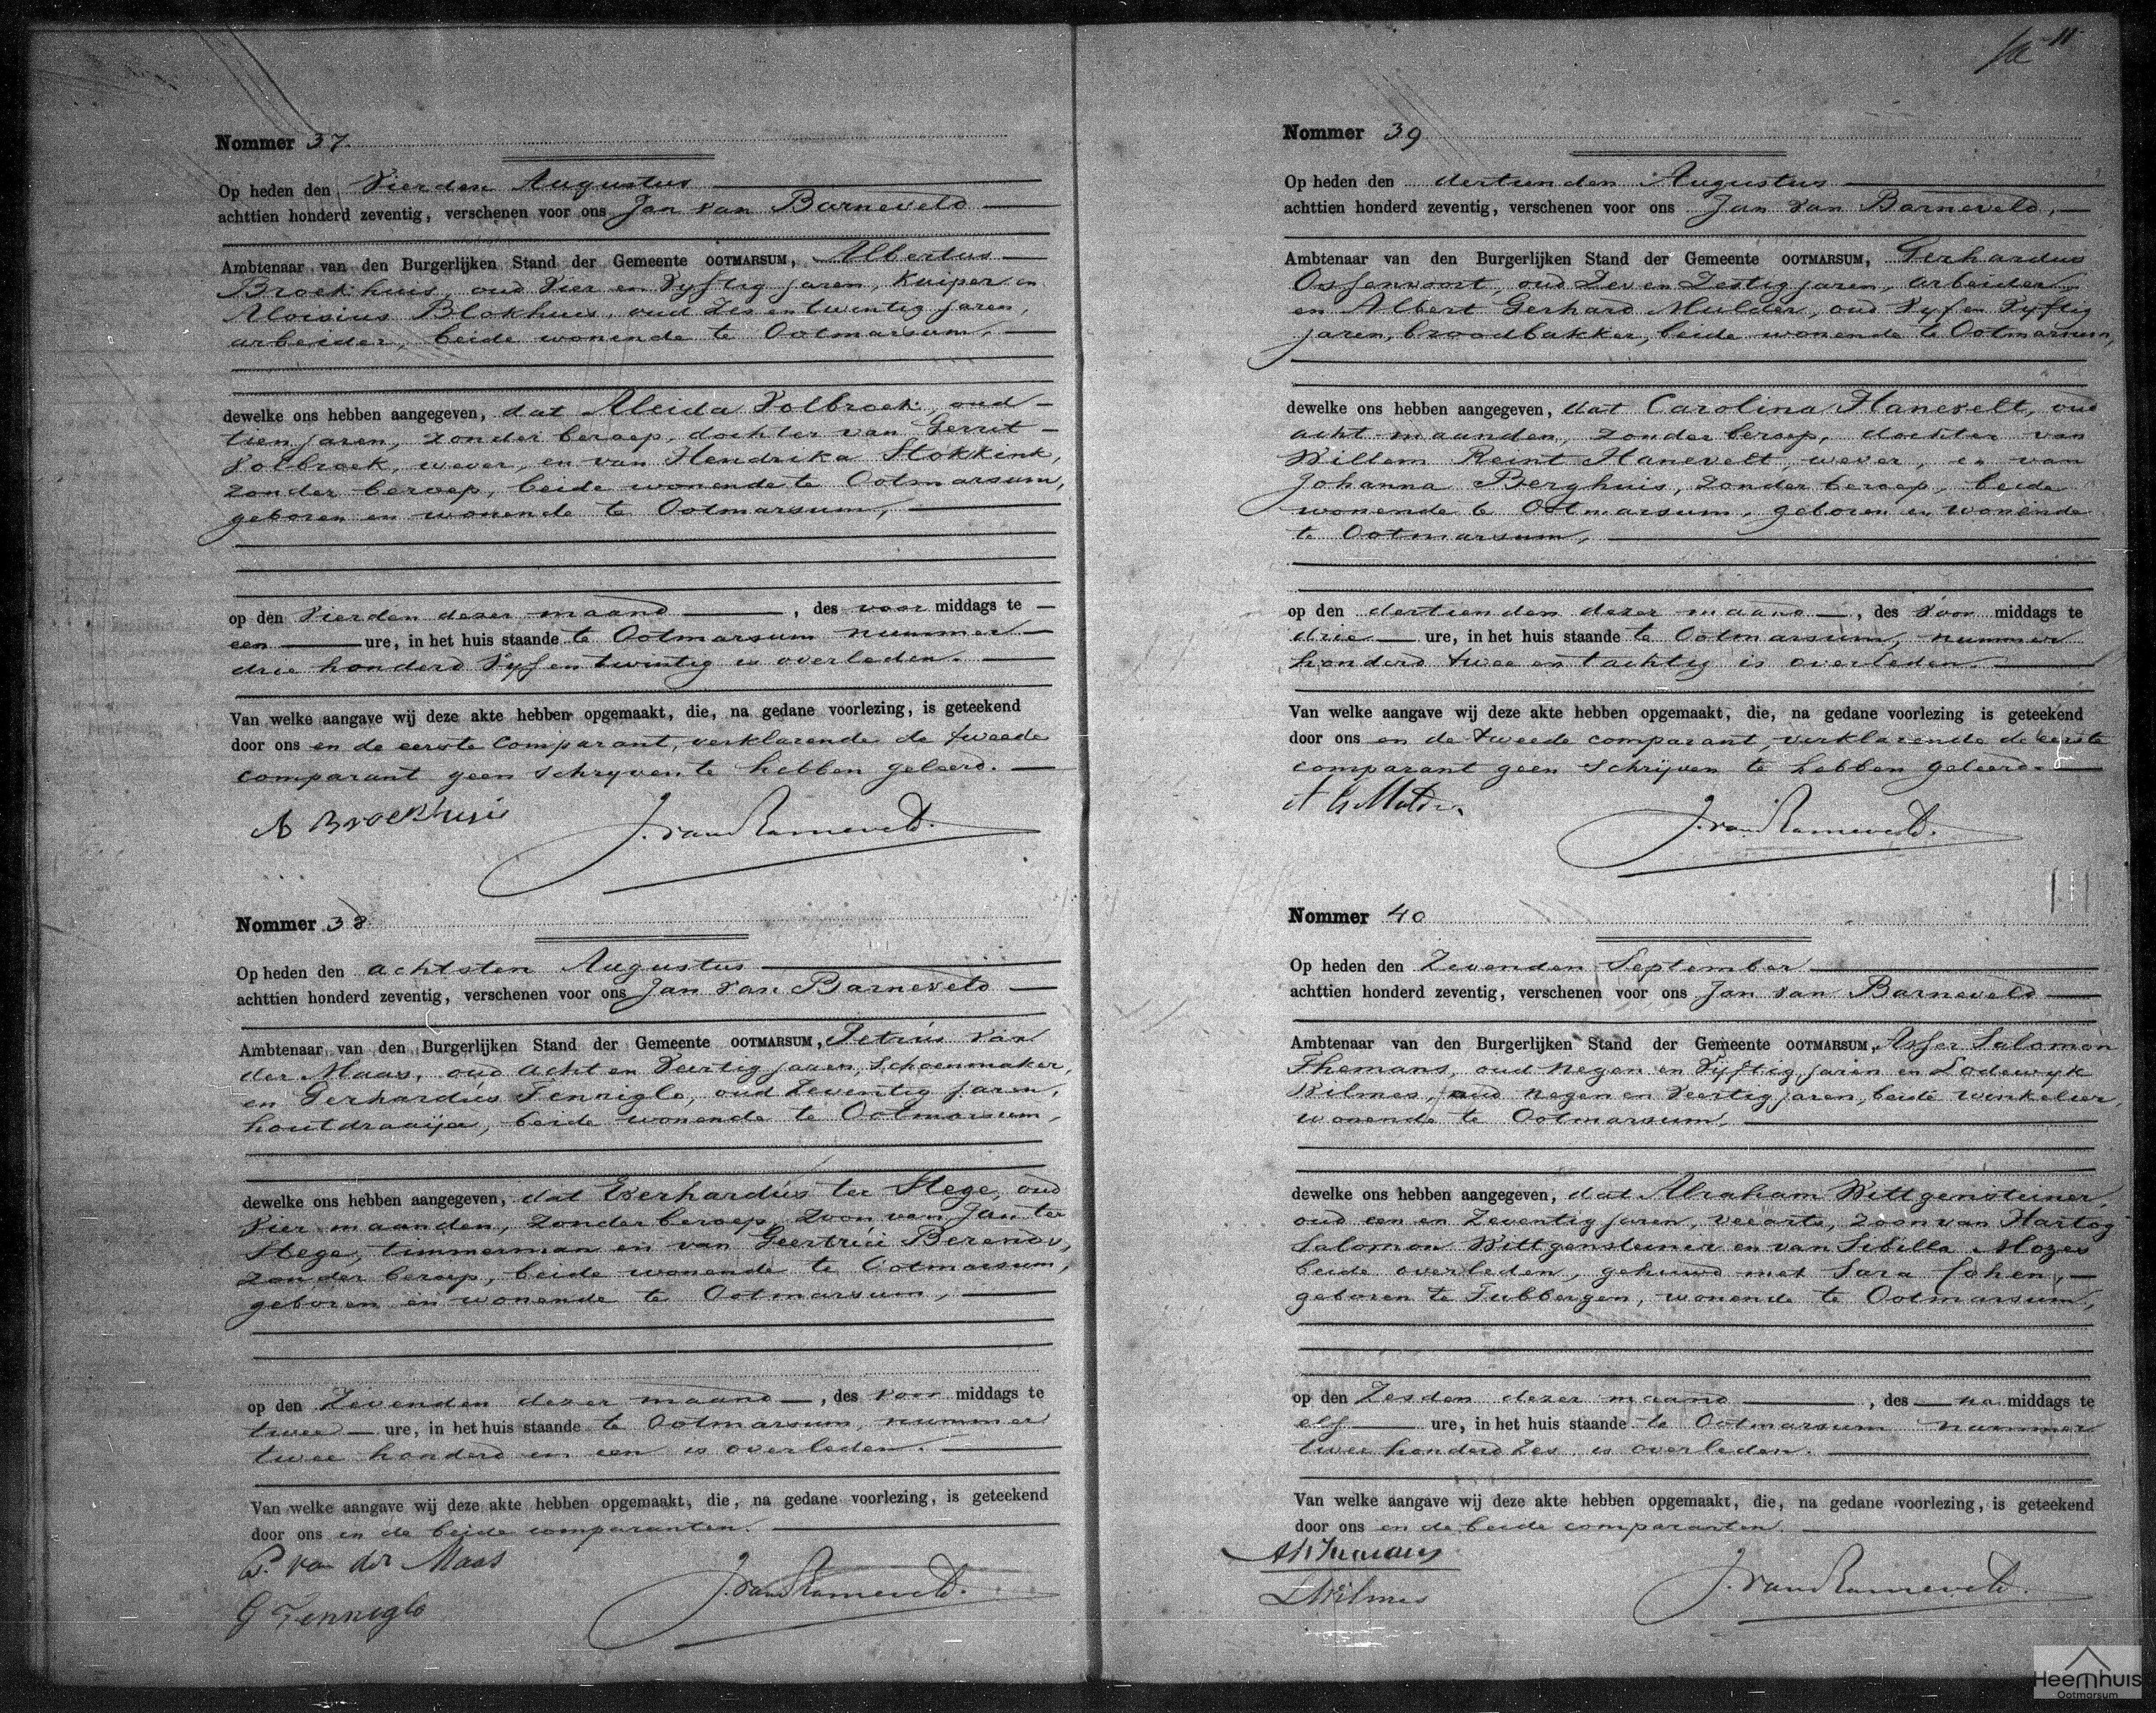 11
Nommer 37.
Op heden den Vierden Augustus
achttien honderd zeventig, verschenen voor ons Jan van Barneveld
Ambtenaar van den Burgerlijken Stand der Gemeente OOTMARSUM, Albertus
Broekhuis, oud Vier en Vyftig jaren, Kuiper en
Aloisius Blokhuis, oud Zes en twintig jaren,
arbeider, beide wonende te Ootmarsum,
dewelke ons hebben aangegeven, dat Aleida Volbroek, oud
tien jaren, zonder beroep, dochter van Gerrit
Volbroek, wever, en van Hendrika Stokkink,
zonder beroep, beide wonende te Ootmarsum,
geboren en wonende te Ootmarsum,
op den Vierden dezer maand, des voor middags te
een ure, in het huis staande te Ootmarsum nummer
drie honderd Vyf en twintig is overleden.
Van welke aangave wij deze akte hebben opgemaakt, die, na gedane voorlezing, is geteekend
door ons en de eerste comparant, verklarende de tweede
comparant geen schryven te hebben geleerd.
A Broekhuis
J. van Barneveld.
Nommer 38
Op heden den achtsten Augustus
achttien honderd zeventig, verschenen voor ons Jan van Barneveld
Ambtenaar van den Burgerlijken Stand der Gemeente OOTMARSUM, Petrus van
der Maas, oud acht en Veertig jaren, Schoenmaker,
en Gerhardus Fenniglo, oud Zeventig jaren,
houtdraaijer, beide wonende te Ootmarsum,
dewelke ons hebben aangegeven, dat Everhardus ter Stege, oud
Vier maanden, zonder beroep, zoon van Jan ter
Stege, timmerman en van Geertrui Berends,
zonder beroep, beide wonende te Ootmarsum,
geboren en wonende te Ootmarsum,
op den Zevenden dezer maand, des voor middags te
twee ure, in het huis staande te Ootmarsum, nummer
twee honderd en een is overleden.
Van welke aangave wij deze akte hebben opgemaakt, die, na gedane voorlezing, is geteekend
door ons en de beide comparanten.
P. van der Maas
G Fenniglo
J. van Barneveld.
Nommer 39
Op heden den dertienden Augustus
achttien honderd zeventig, verschenen voor ons Jan van Barneveld,
Ambtenaar van den Burgerlijken Stand der Gemeente OOTMARSUM, Gerhardus
Ossenvoort, oud Zev en Zestig jaren, arbeider
en Albert Gerhard Mulder, oud Vyf en Vyftig
jaren, broodbakker, beide wonende te Ootmarsum,
dewelke ons hebben aangegeven, dat Carolina Hanevelt, oud
acht maanden, zonder beroep, dochter van
Willem Reint Hanevelt, wever, en van
Johanna Berghuis, zonder beroep, beide
wonende te Ootmarsum, geboren en wonende
te Ootmarsum,
op den dertienden dezer maand, des voor middags te
drie ure, in het huis staande te Ootmarsum, nummer
honderd twee en tachtig is overleden.
Van welke aangave wij deze akte hebben opgemaakt, die, na gedane voorlezing is geteekend
door ons en de tweede comparant, verklarende de eerste
comparant geen schrijven te hebben geleerd.
A G Mulder
J. van Barneveld.
Nommer 40
Op heden den Zevenden September
achttien honderd zeventig, verschenen voor ons Jan van Barneveld
Ambtenaar van den Burgerlijken Stand der Gemeente OOTMARSUM, Asser Salomon
Themans, oud negen en Vyftig jaren en Lodewyk
Wilmes, oud negen en Veertig jaren, beide winkelier,
wonende te Ootmarsum,
dewelke ons hebben aangegeven, dat Abraham Wittgensteiner,
oud een en Zeventig jaren, veearts, zoon van Hartog
Salomon Wittgensteiner en van Sibilla Mozes
beide overleden, gehuwd met Sara Cohen,
geboren te Tubbergen, wonende te Ootmarsum,
op den Zesden dezer maand, des na middags te
elf ure, in het huis staande te Ootmarsum nummer
twee honderd zes, is overleden.
Van welke aangave wij deze akte hebben opgemaakt, die, na gedane voorlezing, is geteekend
door ons en de beide comparanten.
AS Themans
L Wilmes
J. van Barneveld.
Heemhuis
Ootmarsum